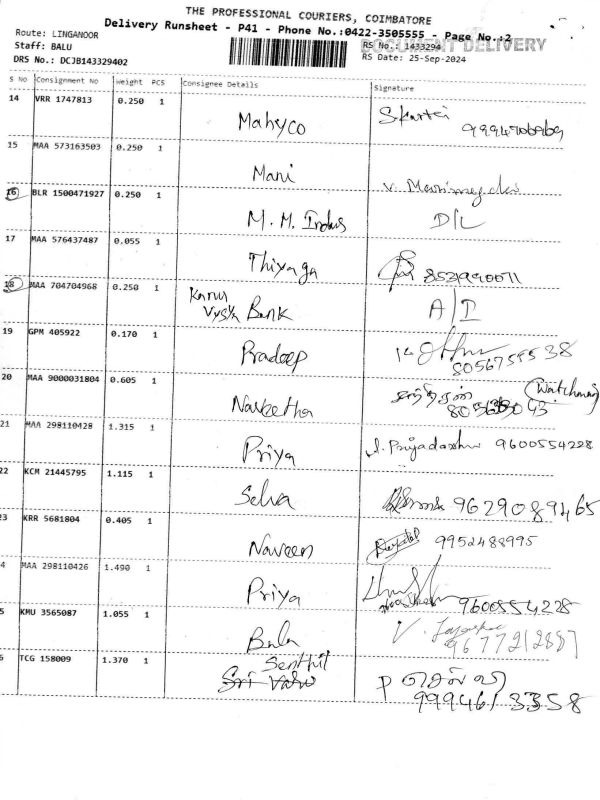 THE PROFESSIONAL COURIERS, COIMBATORE
Delivery Runsheet - P41 - Phone No.:0422-3505555 - Page No.:2
Route: LINGANOOR
DOCUMENT DELIVERY
Staff: BALU
RS No.: 1433294
DRS No.: DCJB143329402
RS Date: 25-Sep-2024
S No Consignment No Weight PCS Consignee Details Signature
14 VRR 1747813 0.250 1 Mahyco
15 MAA 573163503 0.250 1 Mani
16 BLR 1500471927 0.250 1 M.M. Indus D/L
17 MAA 576437487 0.055 1 Thiyaga 8531990071
18 MAA 704704968 0.250 1 Karur Vysya Bank A/I
19 GPM 405922 0.170 1 Pradeep
8056755538
20 MAA 9000031804 0.605 1 Navkeetha (Watchman)
21 MAA 298110428 1.315 1 Priya J. Priyadarshini 9600554228
22 KCM 21445795 1.115 1 Selva 9629089465
23 KRR 5681804 0.405 1 Naveen 9952488995
4 MAA 298110426 1.490 1 Priya 9600554228
5 KMU 3565087 1.055 1 Bala V.
9677212887
6 TCG 158009 1.370 1 Senthil
P செல்வி
9994613358